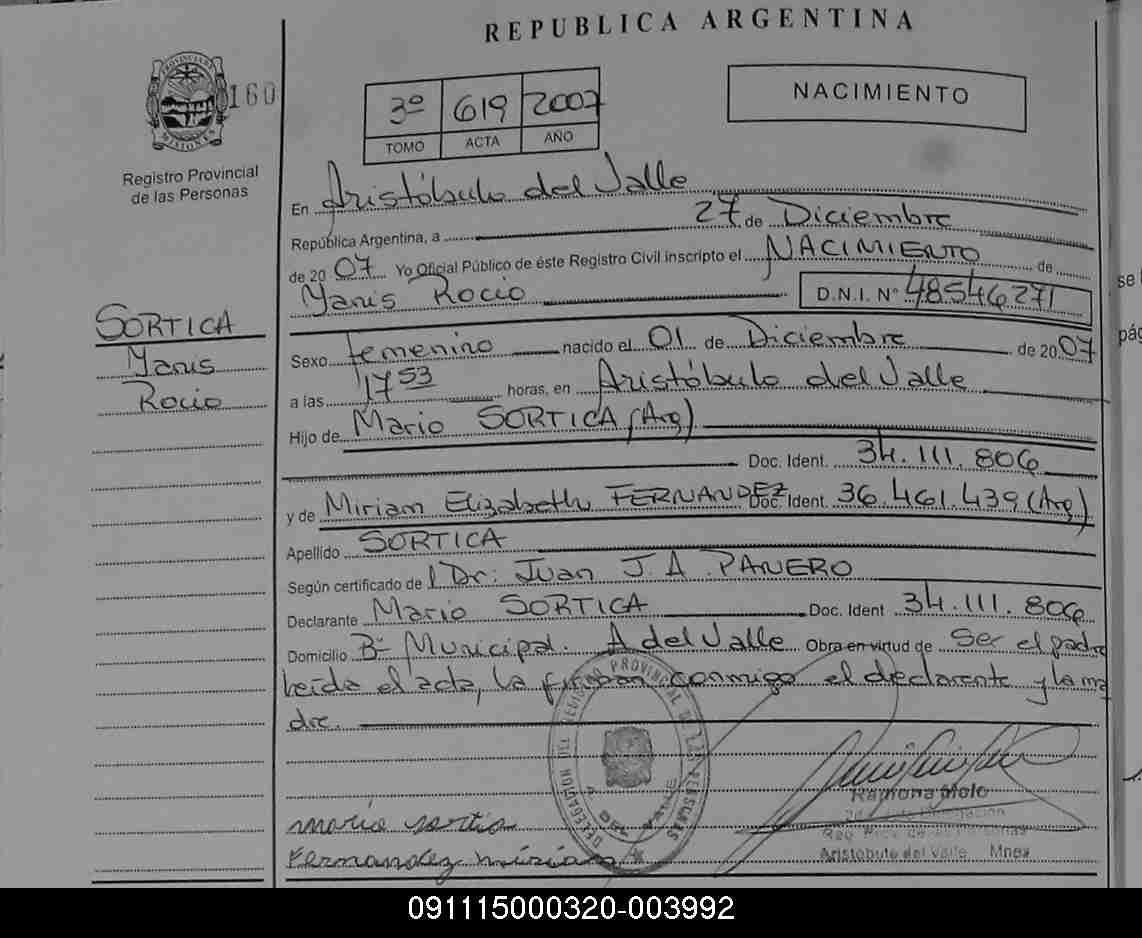 REPUBLICA ARGENTINA
160
3º 619 2007
TOMO ACTA AÑO
NACIMIENTO
PROVINCIA DE MISIONES
Registro Provincial
de las Personas
En Aristóbulo del Valle
República Argentina, a 27 de Diciembre
de 2007 Yo Oficial Público de éste Registro Civil inscripto el NACIMIENTO de
Yanis Rocio D.N.I. Nº 48546271
SORTICA
Yanis
Rocio
Sexo femenino nacido el 01 de Diciembre de 2007
a las 17 53 horas, en Aristóbulo del Valle
Hijo de Mario SORTICA (Arg)
Doc. Ident. 34.111.806
y de Miriam Elizabeth FERNANDEZ Doc. Ident. 36.461.439 (Arg)
Apellido SORTICA
Según certificado de l Dr: Juan J.A. PANERO
Declarante Mario SORTICA Doc. Ident 34.111.806
Domicilio Bº Municipal. A del Valle Obra en virtud de Ser el padre
leida el acta, la firman conmigo el declarante y la ma
dre.
DELEGACION DEL REGISTRO PROVINCIAL DE LAS PERSONAS
A. DEL VALLE
mario sortica
Fernandez miriam
Ramona Melo
Delegación
Reg. Prov. de las Personas
Aristóbulo del Valle Mnes
se
pág
091115000320-003992